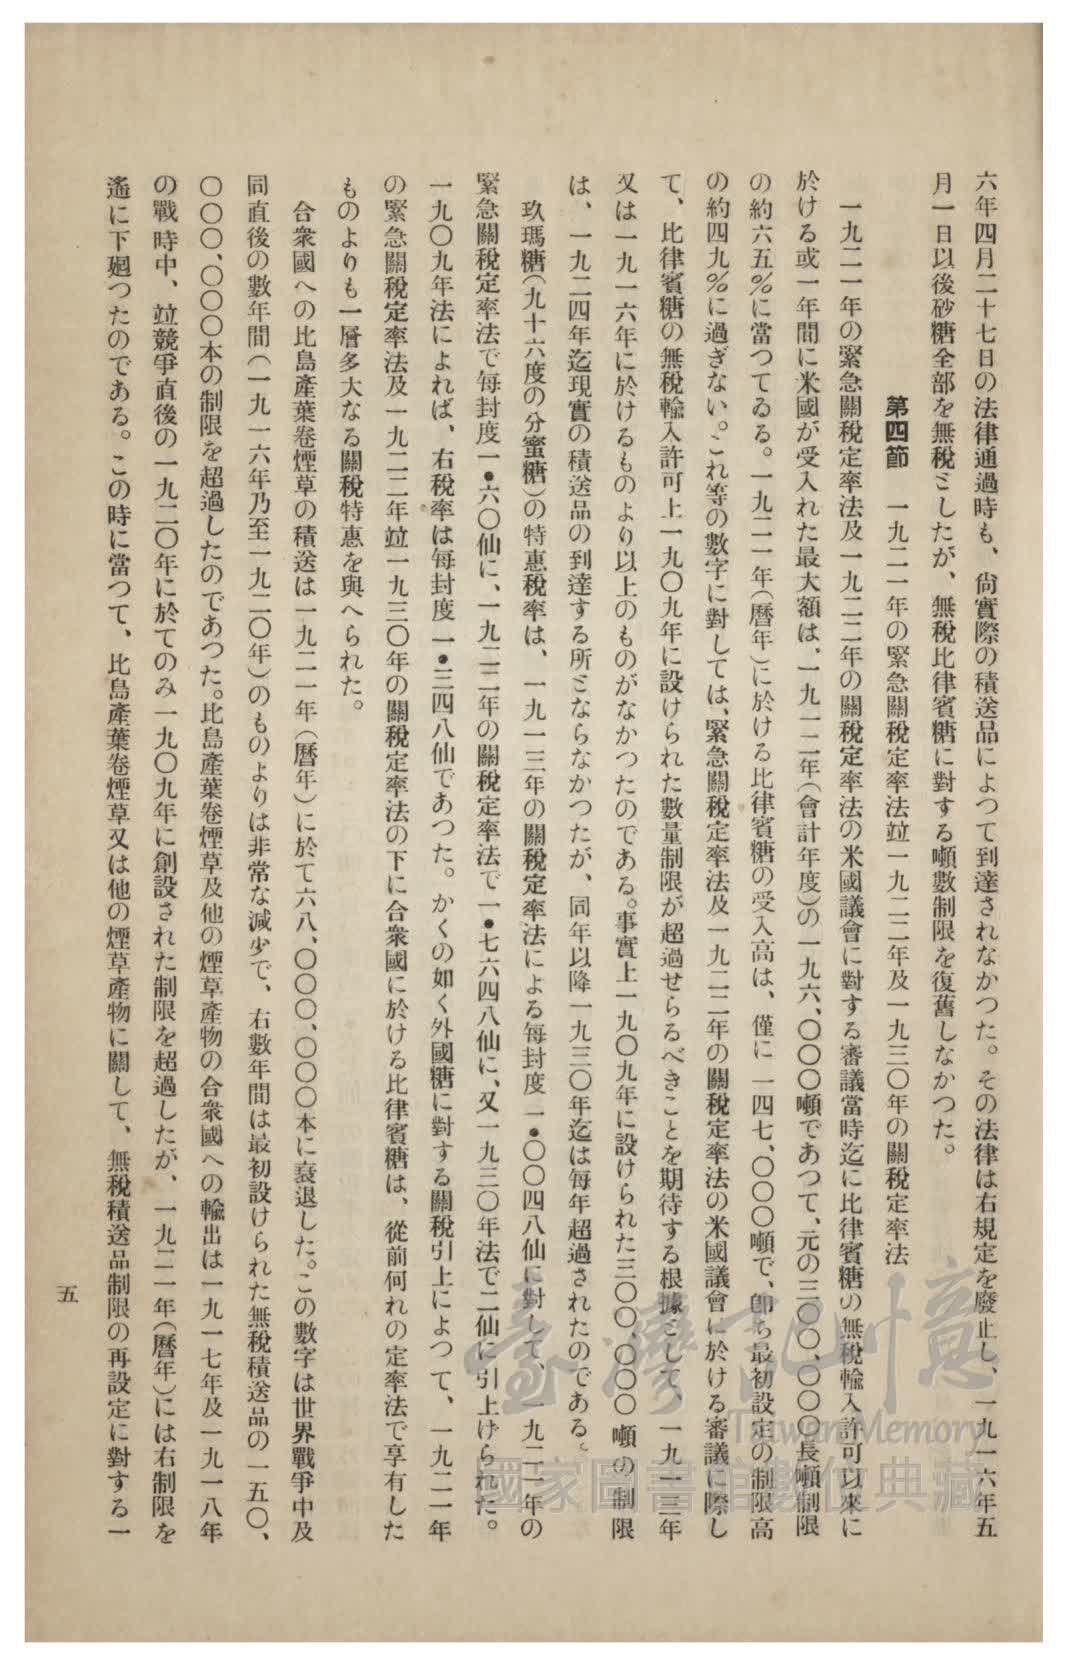 六年四月二十七日の法律通過時も、尙實際の積送品によつて到達されなかつた。その法律は右規定を廢止し、一九一六年五
月一日以後砂糖全部を無稅としたが、無稅比律賓糖に對する噸數制限を復舊しなかつた。
第四節　一九二一年の緊急關稅定率法竝一九二二年及一九三〇年の關稅定率法
一九二一年の緊急關稅定率法及一九二二年の關稅定率法の米國議會に對する審議當時迄に比律賓糖の無稅輸入許可以來に
於ける或一年間に米國が受入れた最大額は、一九一二年（會計年度）の一九六、〇〇〇噸であつて、元の三〇〇、〇〇〇長噸制限
の約六五％に當つてゐる。一九二一年（曆年）に於ける比律賓糖の受入高は、僅に一四七、〇〇〇噸で、卽ち最初設定の制限高
の約四九％に過ぎない。これ等の數字に對しては、緊急關稅定率法及一九二二年の關稅定率法の米國議會に於ける審議に際し
て、比律賓糖の無稅輸入許可上一九〇九年に設けられた數量制限が超過せらるべきことを期待する根據として、一九一三年
又は一九一六年に於けるものより以上のものがなかつたのである。事實上一九〇九年に設けられた三〇〇、〇〇〇噸の制限
は、一九二四年迄現實の積送品の到達する所とならなかつたが、同年以降一九三〇年迄は每年超過されたのである。
玖瑪糖（九十六度の分蜜糖）の特惠稅率は、一九一三年の關稅定率法による每封度一•〇〇四八仙に對して、一九二一年の
緊急關稅定率法で每封度一•六〇仙に、一九二二年の關稅定率法で一•七六四八仙に、又一九三〇年法で二仙に引上げられた。
一九〇九年法によれば、右稅率は每封度一•三四八仙であつた。かくの如く外國糖に對する關稅引上によつて、一九二一年
の緊急關稅定率法及一九二二年竝一九三〇年の關稅定率法の下に合衆國に於ける比律賓糖は、從前何れの定率法で享有した
ものよりも一層多大なる關稅特惠を與へられた。
合衆國への比島產葉卷煙草の積送は一九二一年（曆年）に於て六八、〇〇〇、〇〇〇本に衰退した。この數字は世界戰爭中及
同直後の數年間（一九一六年乃至一九二〇年）のものよりは非常な減少で、右數年間は最初設けられた無稅積送品の一五〇、
〇〇〇、〇〇〇本の制限を超過したのであつた。比島產葉卷煙草及他の煙草產物の合衆國への輸出は一九一七年及一九一八年
の戰時中、竝競爭直後の一九二〇年に於てのみ一九〇九年に創設された制限を超過したが、一九二一年（曆年）には右制限を
遙に下廻つたのである。この時に當つて、比島產葉卷煙草又は他の煙草產物に關して、無稅積送品制限の再設定に對する一
五
臺灣記憶
Taiwan Memory
國家圖書館數位典藏